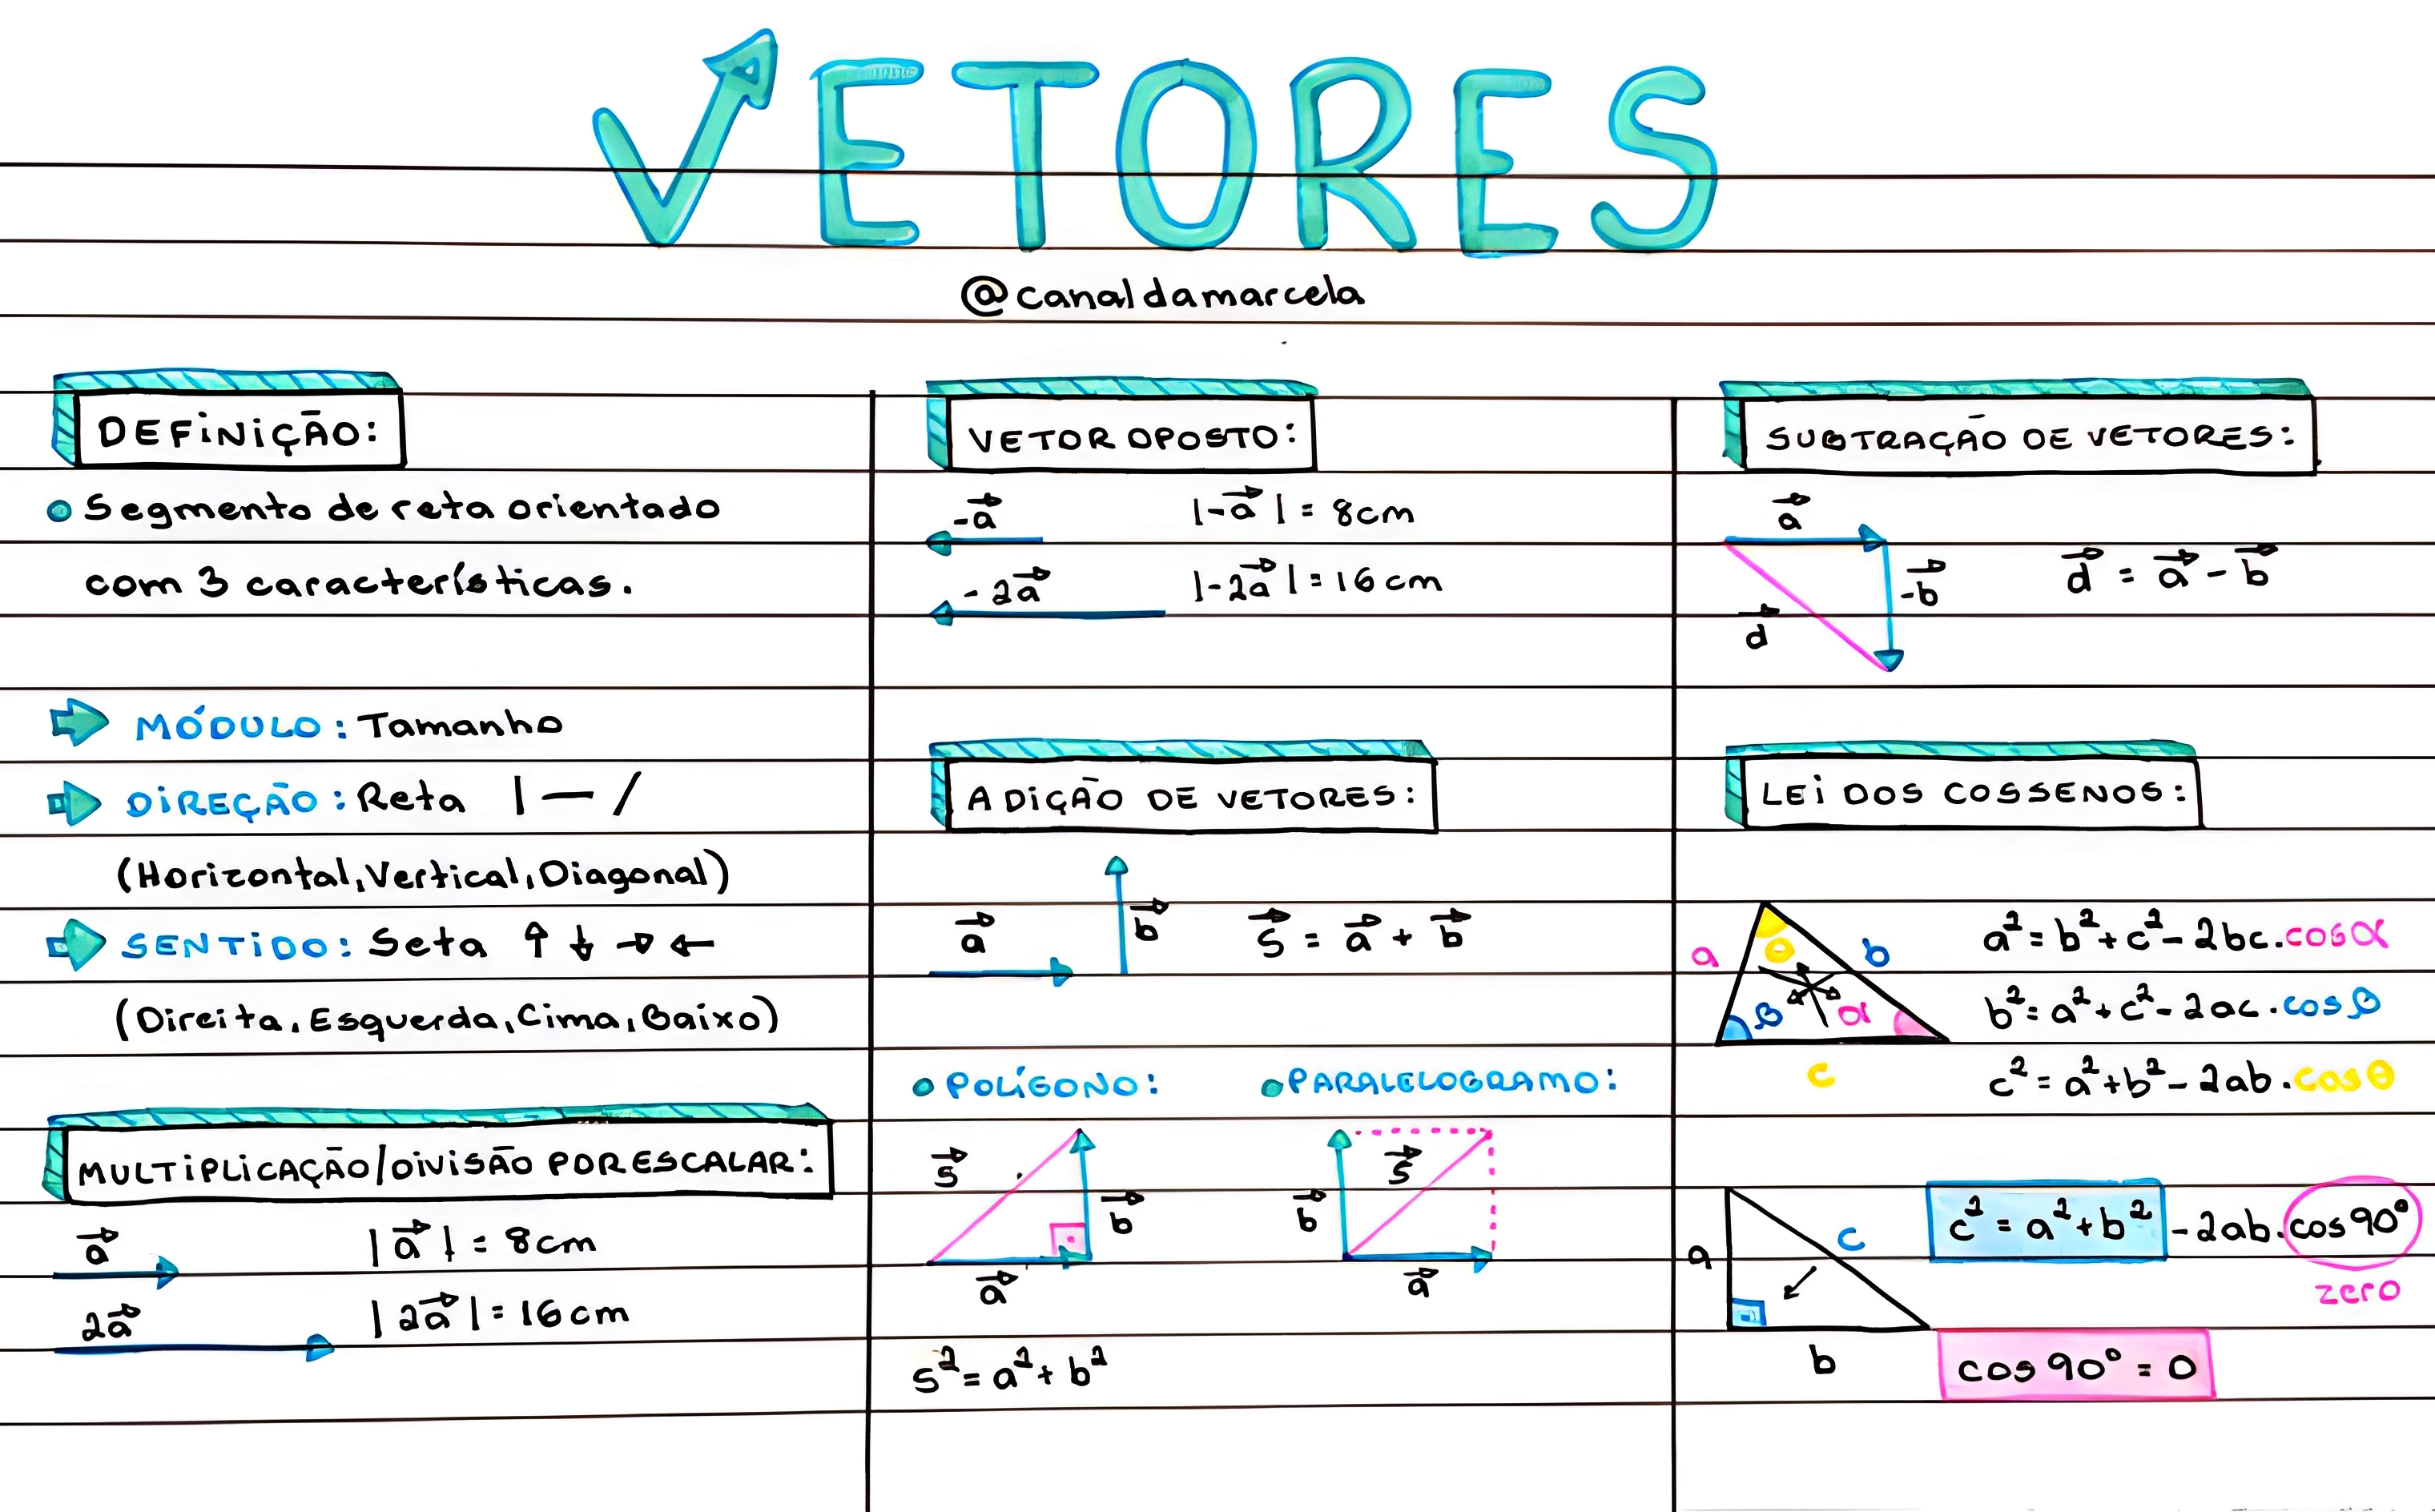 VETORES
@canaldamarcela
DEFINIÇÃO:
Segmento de reta orientado
com 3 características.
MÓDULO: Tamanho
DIREÇÃO: Reta | — /
(Horizontal, Vertical, Diagonal)
SENTIDO: Seta ↑ ↓ → ←
(Direita, Esquerda, Cima, Baixo)
MULTIPLICAÇÃO/DIVISÃO POR ESCALAR:
a⃗ |a⃗| = 8cm
2a⃗ |2a⃗| = 16cm
VETOR OPOSTO:
-a⃗ |-a⃗| = 8cm
-2a⃗ |-2a⃗| = 16cm
ADIÇÃO DE VETORES:
a⃗ b⃗ s⃗ = a⃗ + b⃗
POLÍGONO: PARALELOGRAMO:
s⃗ b⃗ a⃗
b⃗ s⃗ a⃗
s² = a² + b²
SUBTRAÇÃO DE VETORES:
a⃗
-b⃗ d⃗ = a⃗ - b⃗
d⃗
LEI DOS COSSENOS:
a θ b a² = b² + c² - 2bc.cosα
β α b² = a² + c² - 2ac.cosβ
c c² = a² + b² - 2ab.cosθ
a c c² = a² + b² - 2ab.cos90°
zero
b cos90° = 0